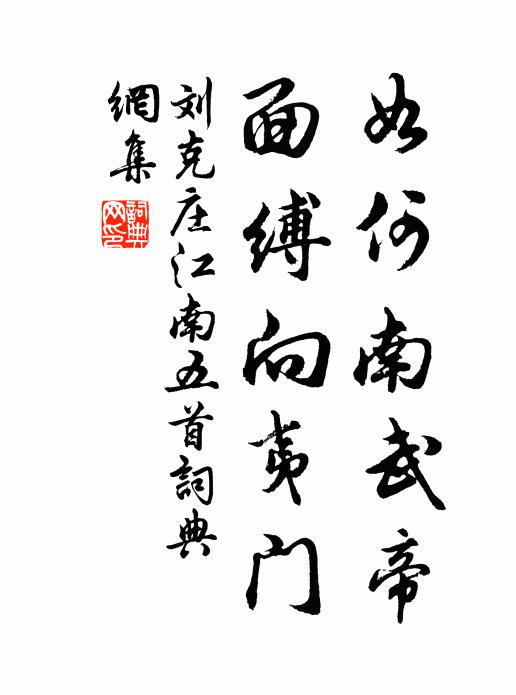 如何南武帝
面缚向夷门
刘克庄江南五首詞典
網集
詞典網印